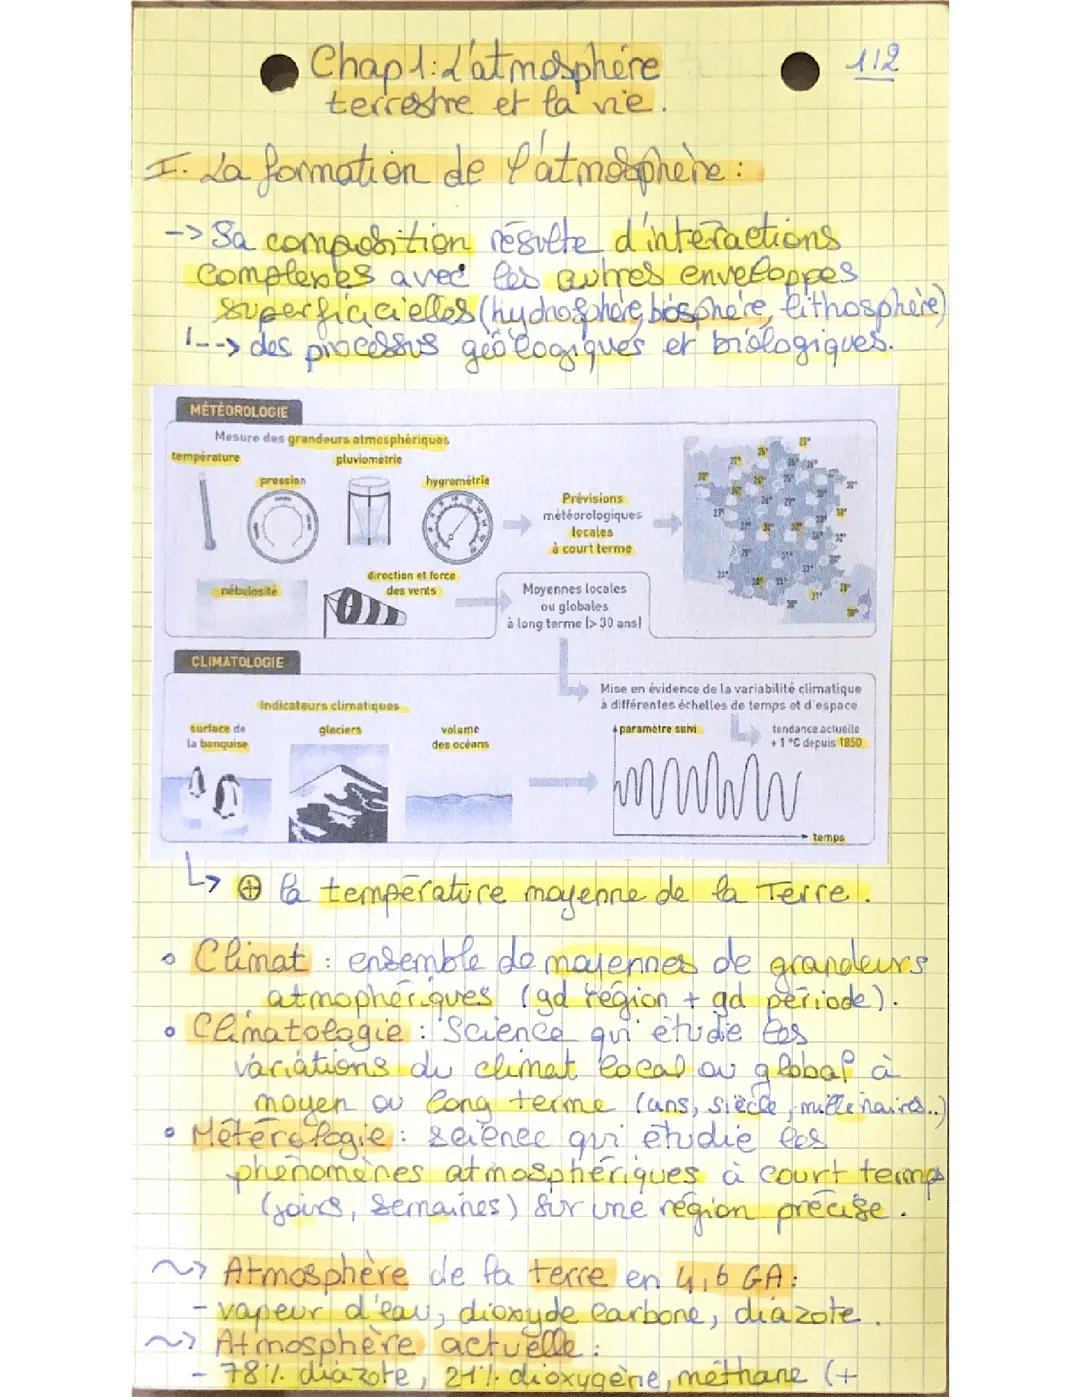 Chap 1: L'atmosphère
112
terrestre et la vie.
I. La formation de l'atmosphère :
-> Sa composition résulte d'intéractions
complexes avec les autres enveloppes
superficicielles (hydrosphère, biosphère, lithosphère)
--> des processus géologiques et biologiques.
MÉTÉOROLOGIE
Mesure des grandeurs atmosphériques
température
pluviométrie
pression
hygrométrie
Prévisions
météorologiques
locales
à court terme
nébulosité
direction et force
des vents
Moyennes locales
ou globales
à long terme (> 30 ans)
CLIMATOLOGIE
Mise en évidence de la variabilité climatique
à différentes échelles de temps et d'espace
Indicateurs climatiques
surface de
la banquise
glaciers
volume
des océans
paramètre suivi
tendance actuelle
+ 1 °C depuis 1850
temps
↳ ⊕ la température moyenne de la Terre.
• Climat : ensemble de moyennes de grandeurs
atmophériques (gd région + gd période).
• Climatologie : Science qui étudie les
variations du climat local ou global à
moyen ou long terme (ans, siècle, millénaires..)
• Métérologie : science qui étudie les
phénomènes atmosphériques à court temps
(jours, semaines) sur une région précise.
~> Atmosphère de la terre en 4,6 GA :
- vapeur d'eau, dioxyde carbone, diazote.
~> Atmosphère actuelle :
- 78% diazote, 21% dioxygène, méthane (+